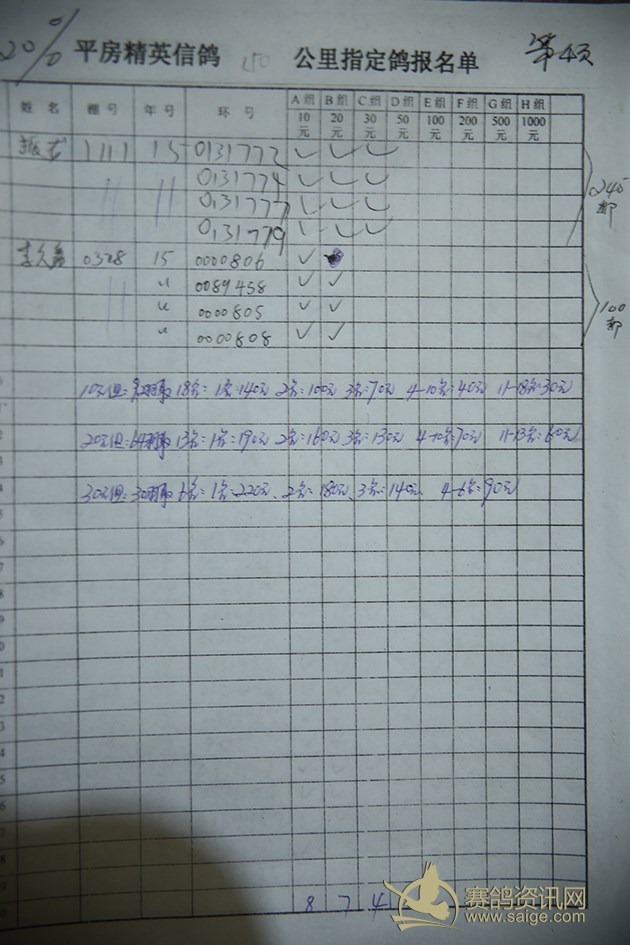 20% 平房精英信鸽 150 公里指定鸽报名单 第4页
姓 名 棚 号 年 号 环 号 A 组 B 组 C 组 D 组 E 组 F 组 G 组 H 组
10 20 30 50 100 200 500 1000
元 元 元 元 元 元 元 元
1111 15 0131772 ✓ ✓ ✓
〃 〃 0131774 ✓ ✓ ✓
〃 〃 0131777 ✓ ✓ ✓
〃 〃 0131779 ✓ ✓ ✓
240
0328 15 0000806 ✓
〃 〃 0089458 ✓ ✓
〃 〃 0000805 ✓ ✓
〃 0000808 ✓ ✓
100
10元组: 取18名: 1名:140元 2名:100元 3名:70元 4-10名:40元 11-18名:30元
20元组: 64羽取13名: 1名:190元 2名:160元 3名:130元 4-10名:70元 11-13名:60元
30元组: 30羽取6名: 1名:220元、2名:180元、3名:140元、4-6名:90元
8 7 4
赛鸽资讯网
www.saige.com